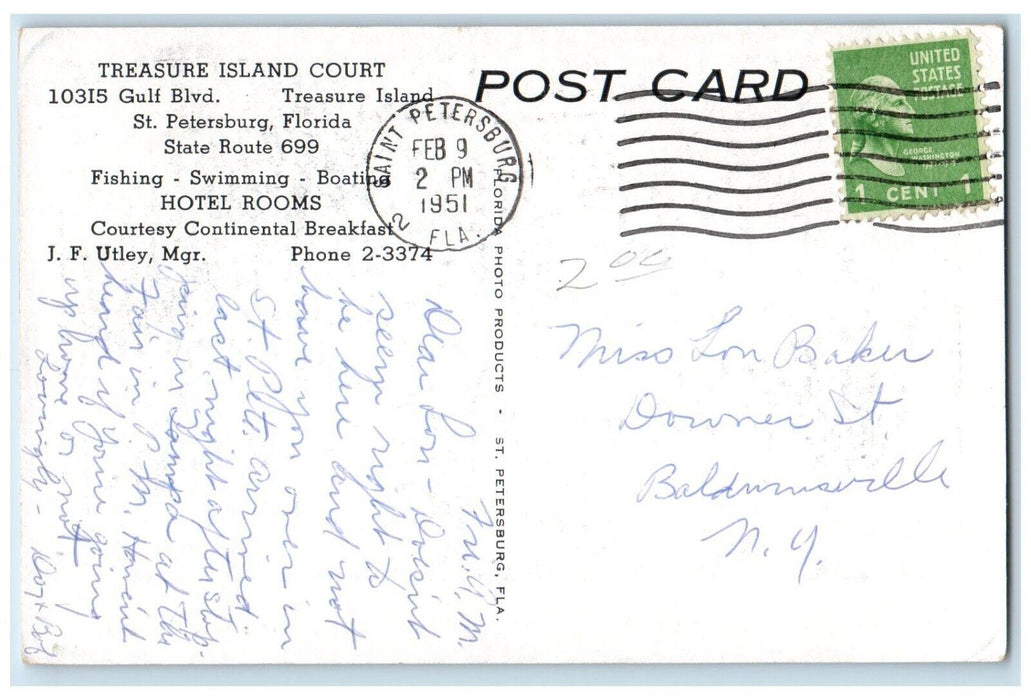 TREASURE ISLAND COURT
10315 Gulf Blvd. Treasure Island
St. Petersburg, Florida
State Route 699
Fishing - Swimming - Boating
HOTEL ROOMS
Courtesy Continental Breakfast
J. F. Utley, Mgr. Phone 2-3374
POST CARD
SAINT PETERSBURG
FEB 9
2 PM
1951
2 FLA.
UNITED
STATES
POSTAGE
GEORGE
WASHINGTON
1 CENT 1
FLORIDA PHOTO PRODUCTS - ST. PETERSBURG, FLA.
2 00
Miss Lon Baker
Downer St
Baldwinsville
N.Y.
Fri. A.M.
Dear Lon - Doesn't
seem right to
be here and not
have you over in
St. Pete. arrived
last night after stop-
ping in Tampa at the
Fair in P.M. Haven't
heard if you're going
up home or not
Lovingly - Dot + Bob